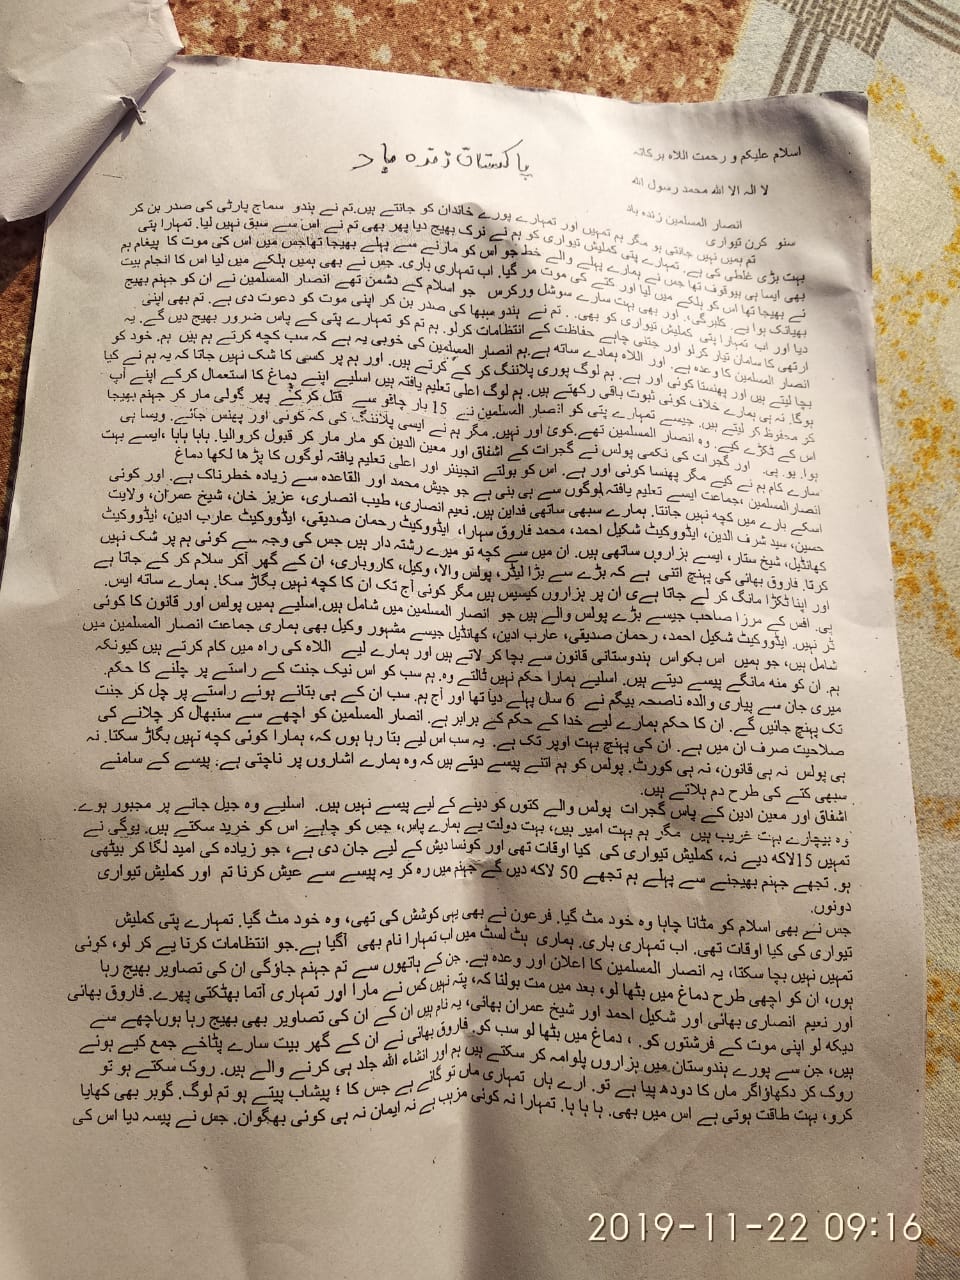 پاکستان زندہ باد
اسلام علیکم و رحمت اللاہ برکاتہ
لا الہ الا اللہ محمد رسول اللہ
انصار المسلمین زندہ باد
سنو کرن تیواری
تم ہمیں نہیں جانتی ہو مگر ہم تمہیں اور تمہارے پورے خاندان کو جانتے ہیں.تم نے ہندو سماج پارٹی کی صدر بن کر
بہت بڑی غلطی کی ہے. تمہارے پتی کملیش تیواری کو ہم نے نرک بھیج دیا پھر بھی تم نے اس سے سبق نہیں لیا. تمہارا پتی
بھی ایسا ہی بیوقوف تھا جس نے ہمارے پہلے والے خط جو اس کو مارنے سے پہلے بھیجا تھاجس میں اس کی موت کا پیغام ہم
نے بھیجا تھا اس کو ہلکے میں لیا اور کتے کی موت مر گیا. اب تمہاری باری. جس نے بھی ہمیں ہلکے میں لیا اس کا انجام بہت
بھیانک ہوا ہے. کلبرگی، اور بھی بہت سارے سوشل ورکرس جو اسلام کے دشمن تھے انصار المسلمین نے ان کو جہنم بھیج
دیا اور اب تمہارا پتی کملیش تیواری کو بھی. . تم نے ہندو سبھا کی صدر بن کر اپنی موت کو دعوت دی ہے. تم بھی اپنی
ارتھی کا سامان تیار کرلو اور جتنی چاہے حفاظت کے انتظامات کرلو. ہم تم کو تمہارے پتی کے پاس ضرور بھیج دیں گے. یہ
انصار المسلمین کا وعدہ ہے. اور اللاہ ہمارے ساتھ ہے.ہم انصار المسلمین کی خوبی یہ ہے کہ سب کچھ کرتے ہم ہیں ہم. خود کو
بچا لیتے ہیں اور پھنستا کوئی اور ہے. ہم لوگ پوری پلاننگ کر کے کرتے ہیں. اور ہم پر کسی کا شک نہیں جاتا کہ یہ ہم نے کیا
ہوگا. نہ ہی ہمارے خلاف کوئی ثبوت باقی رکھتے ہیں. ہم لوگ اعلی تعلیم یافتہ ہیں اسلیے اپنے دماغ کا استعمال کرکے اپنے آپ
کو محفوظ کر لیتے ہیں. جیسے تمہارے پتی کو انصار المسلمین نے 15 بار چاقو سے قتل کرکے پھر گولی مار کر جہنم بھیجا
اس کے ٹکڑے کیے. وہ انصار المسلمین تھے.کوئ اور نہیں. مگر ہم نے ایسی پلاننگ کی کہ کوئی اور پھنس جائے. ویسا ہی
ہوا. یو. پی. اور گجرات کی نکمی پولس نے گجرات کے اشفاق اور معین الدین کو مار مار کر قبول کروالیا. ہاہا ہاہا ،ایسے بہت
سارے کام ہم نے کیے مگر پھنسا کوئی اور ہے. اس کو بولتے انجینئر اور اعلی تعلیم یافتہ لوگوں کا پڑھا لکھا دماغ
انصار المسلمین ،جماعت ایسے تعلیم یافتہ لوگوں سے ہی بنی ہے جو جیش محمد اور القاعدہ سے زیادہ خطرناک ہے. اور کوئی
اسکے بارے میں کچھ نہیں جانتا. ہمارے سبھی ساتھی فداین ہیں. نعیم انصاری، طیب انصاری، عزیز خان، شیخ عمران، ولایت
حسین، سید شرف الدین، ایڈووکیٹ شکیل احمد، محمد فاروق سہارا، ایڈووکیٹ رحمان صدیقی، ایڈووکیٹ عارب ادین، ایڈووکیٹ
کھانڈیل، شیخ ستار، ایسے ہزاروں ساتھی ہیں. ان میں سے کچھ تو میرے رشتہ دار ہیں جس کی وجہ سے کوئی ہم پر شک نہیں
کرتا. فاروق بھائی کی پہنچ اتنی ہے کہ بڑے سے بڑا لیڈر، پولس والا، وکیل، کاروباری، ان کے گھر آکر سلام کر کے جاتا ہے
اور اپنا ٹکڑا مانگ کر لے جاتا ہےی ان پر ہزاروں کیسیس ہیں مگر کوئی آج تک ان کا کچھ نہیں بگاڑ سکا. ہمارے ساتھ ایس.
پی. افس کے مرزا صاحب جیسے بڑے پولس والے ہیں جو انصار المسلمین میں شامل ہیں.اسلیے ہمیں پولس اور قانون کا کوئی
ڈر نہیں. ایڈووکیٹ شکیل احمد، رحمان صدیقی، عارب ادین، کھانڈیل جیسے مشہور وکیل بھی ہماری جماعت انصار المسلمین میں
شامل ہیں، جو ہمیں اس بکواس ہندوستانی قانون سے بچا کر لاتے ہیں اور ہمارے لیے اللاہ کی راہ میں کام کرتے ہیں کیونکہ
ہم. ان کو منہ مانگے پیسے دیتے ہیں. اسلیے ہمارا حکم نہیں ٹالتے وہ. ہم سب کو اس نیک جنت کے راستے پر چلنے کا حکم.
میری جان سے پیاری والدہ ناصحہ بیگم نے 6 سال پہلے دیا تھا اور آج ہم. سب ان کے ہی بتائے ہوئے راستے پر چل کر جنت
تک پہنچ جائیں گے. ان کا حکم ہمارے لیے خدا کے حکم کے برابر ہے. انصار المسلمین کو اچھے سے سنبھال کر چلانے کی
صلاحیت صرف ان میں ہے. ان کی پہنچ بہت اوپر تک ہے. یہ سب اس لیے بتا رہا ہوں کہ، ہمارا کوئی کچھ نہیں بگاڑ سکتا. نہ
ہی پولس نہ ہی قانون، نہ ہی کورٹ. پولس کو ہم اتنے پیسے دیتے ہیں کہ وہ ہمارے اشاروں پر ناچتی ہے. پیسے کے سامنے
سبھی کتے کی طرح دم ہلاتے ہیں.
اشفاق اور معین ادین کے پاس گجرات پولس والے کتوں کو دینے کے لیے پیسے نہیں ہیں. اسلیے وہ جیل جانے پر مجبور ہوے.
وہ بیچارے بہت غریب ہیں مگر ہم بہت امیر ہیں، بہت دولت ہے ہمارے پاس، جس کو چاہے اس کو خرید سکتے ہیں. یوگی نے
تمہیں 15لاکھ دیے نہ، کملیش تیواری کی کیا اوقات تھی اور کونسا دیش کے لیے جان دی ہے، جو زیادہ کی امید لگا کر بیٹھی
ہو. تجھے جہنم بھیجنے سے پہلے ہم تجھے 50 لاکھ دیں گے جہنم میں رہ کر یہ پیسے سے عیش کرنا تم اور کملیش تیواری
دونوں.
جس نے بھی اسلام کو مٹانا چاہا وہ خود مٹ گیا. فرعون نے بھی یہی کوشش کی تھی، وہ خود مٹ گیا. تمہارے پتی کملیش
تیواری کی کیا اوقات تھی. اب تمہاری باری. ہماری ہٹ لسٹ میں اب تمہارا نام بھی آگیا ہے.جو انتظامات کرنا ہے کر لو، کوئی
تمہیں نہیں بچا سکتا، یہ انصار المسلمین کا اعلان اور وعدہ ہے. جن کے ہاتھوں سے تم جہنم جاؤگی ان کی تصاویر بھیج رہا
ہوں، ان کو اچھی طرح دماغ میں بٹھا لو، بعد میں مت بولنا کہ، پتہ نہیں کس نے مارا اور تمہاری آتما بھٹکتی پھرے. فاروق بھائی
اور نعیم انصاری بھائی اور شکیل احمد اور شیخ عمران بھائی، یہ نام ہیں ان کے ان کی تصاویر بھی بھیج رہا ہوںاچھے سے
دیکھ لو اپنی موت کے فرشتوں کو. ، دماغ میں بٹھا لو سب کو. فاروق بھائی نے ان کے گھر بہت سارے پٹاخے جمع کیے ہوئے
ہیں، جن سے پورے ہندوستان میں ہزاروں پلوامہ کر سکتے ہیں ہم اور انشاء اللہ جلد ہی کرنے والے ہیں. روک سکتے ہو تو
روک کر دکھاؤاگر ماں کا دودھ پیا ہے تو. ارے ہاں تمہاری ماں تو گائے ہے جس کا ؛ پیشاب پیتے ہو تم لوگ. گوبر بھی کھایا
کرو، بہت طاقت ہوتی ہے اس میں بھی. ہا ہا ہا. تمہارا نہ کوئی مزہب ہے نہ ایمان نہ ہی کوئی بھگوان. جس نے پیسہ دیا اس کی
2019-11-22 09:16